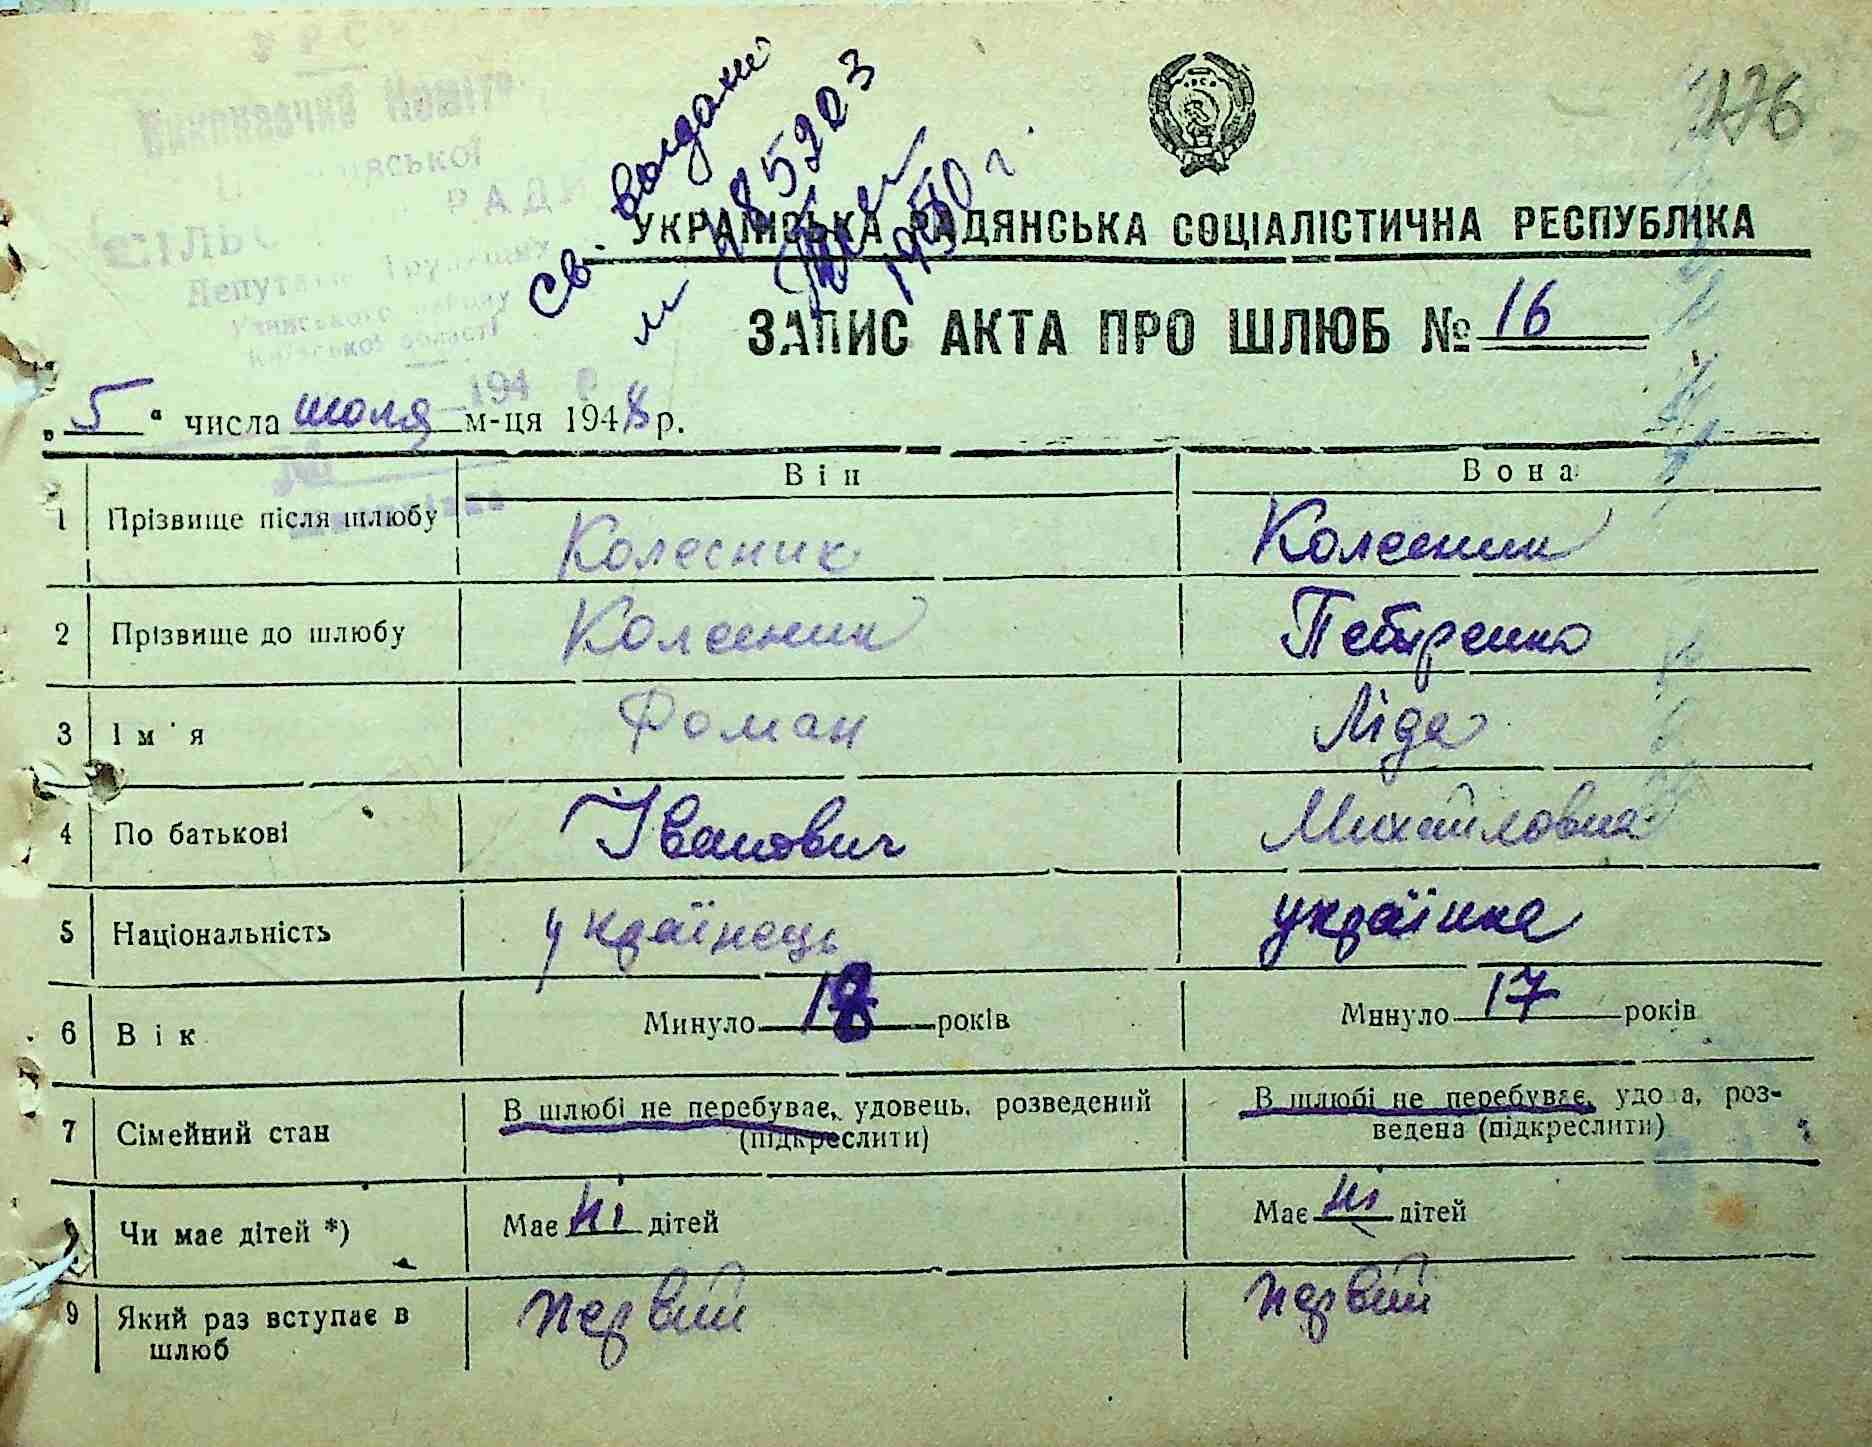 276
Виконавчий Коміте
РАДИ
Київської області
Св. выдани
485203
1950 г.
УКРАЇНСЬКА РАДЯНСЬКА СОЦІАЛІСТИЧНА РЕСПУБЛІКА
ЗАПИС АКТА ПРО ШЛЮБ № 16
„5“ числа июля м-ця 1948 р.
Він Вона
1 Прізвище після шлюбу Колесник Колесник
2 Прізвище до шлюбу Колесник
3 Ім'я Роман Ліда
4 По батькові Іванович Михайловна
5 Національність українець українка
6 Вік Минуло 18 років Минуло 17 років
7 Сімейний стан В шлюбі не перебуває, удовець, розведений (підкреслити) В шлюбі не перебуває, удова, роз-
ведена (підкреслити)
8 Чи має дітей *) Має ні дітей Має ні дітей
9 Який раз вступає в шлюб первий первий